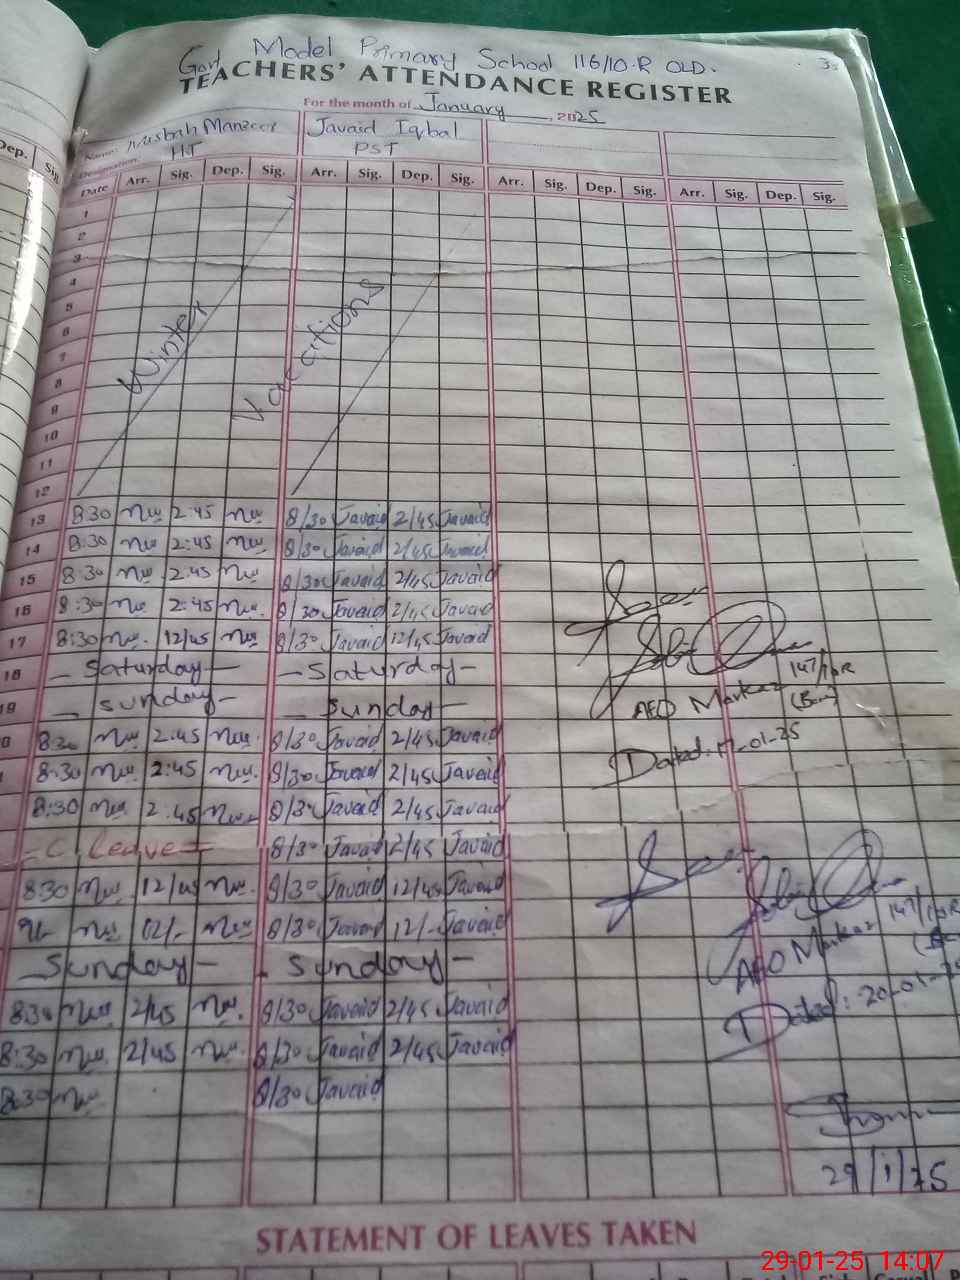 Govt Model Primary School 116/10-R OLD.
TEACHERS' ATTENDANCE REGISTER
For the month of January, 2025
Name: Misbah Manzoor Javaid Iqbal
Designation: HT PST
Date Arr. Sig. Dep. Sig. Arr. Sig. Dep. Sig. Arr. Sig. Dep. Sig. Arr. Sig. Dep. Sig.
1
2
3
4
5
6
7
8
9
10
11
12
Winter Vacations
13 8:30 2:45 8/30 Javaid 2/45 Javaid
14 8:30 2:45 8/30 Javaid 2/45 Javaid
15 8:30 2:45 8/30 Javaid 2/45 Javaid
16 8:30 2:45 8/30 Javaid 2/45 Javaid
17 8:30 12/45 8/30 Javaid 12/45 Javaid
18 - Saturday - - Saturday -
19 - Sunday - - Sunday -
8:30 2:45 8/30 Javaid 2/45 Javaid
8:30 2:45 8/30 Javaid 2/45 Javaid
8:30 2:45 8/30 Javaid 2/45 Javaid
- C. Leave - 8/30 Javaid 2/45 Javaid
8:30 12/45 8/30 Javaid 12/45 Javaid
12/- 8/30 Javaid 12/- Javaid
- Sunday - - Sunday -
8:30 2/45 8/30 Javaid 2/45 Javaid
8:30 2/45 8/30 Javaid 2/45 Javaid
8:30 8/30 Javaid
AEO Markaz 147/10R
Dated: 17-01-25
AEO Markaz 147/10R
Dated: 20-01-
29/1/25
STATEMENT OF LEAVES TAKEN
29-01-25 14:07